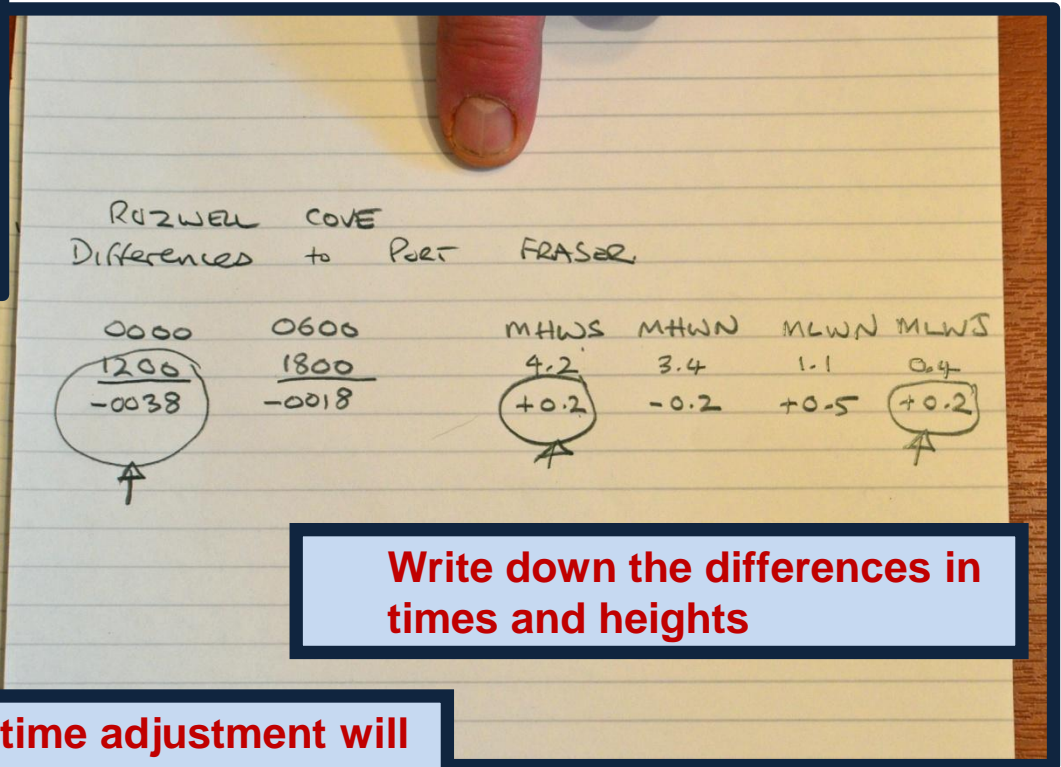 ROZWELL COVE
Differences to PORT FRASER.
0000 0600 MHWS MHWN MLWN MLWS
1200 1800 4.2 3.4 1.1 0.4
-0038 -0018 +0.2 -0.2 +0.5 +0.2
Write down the differences in
times and heights
time adjustment will